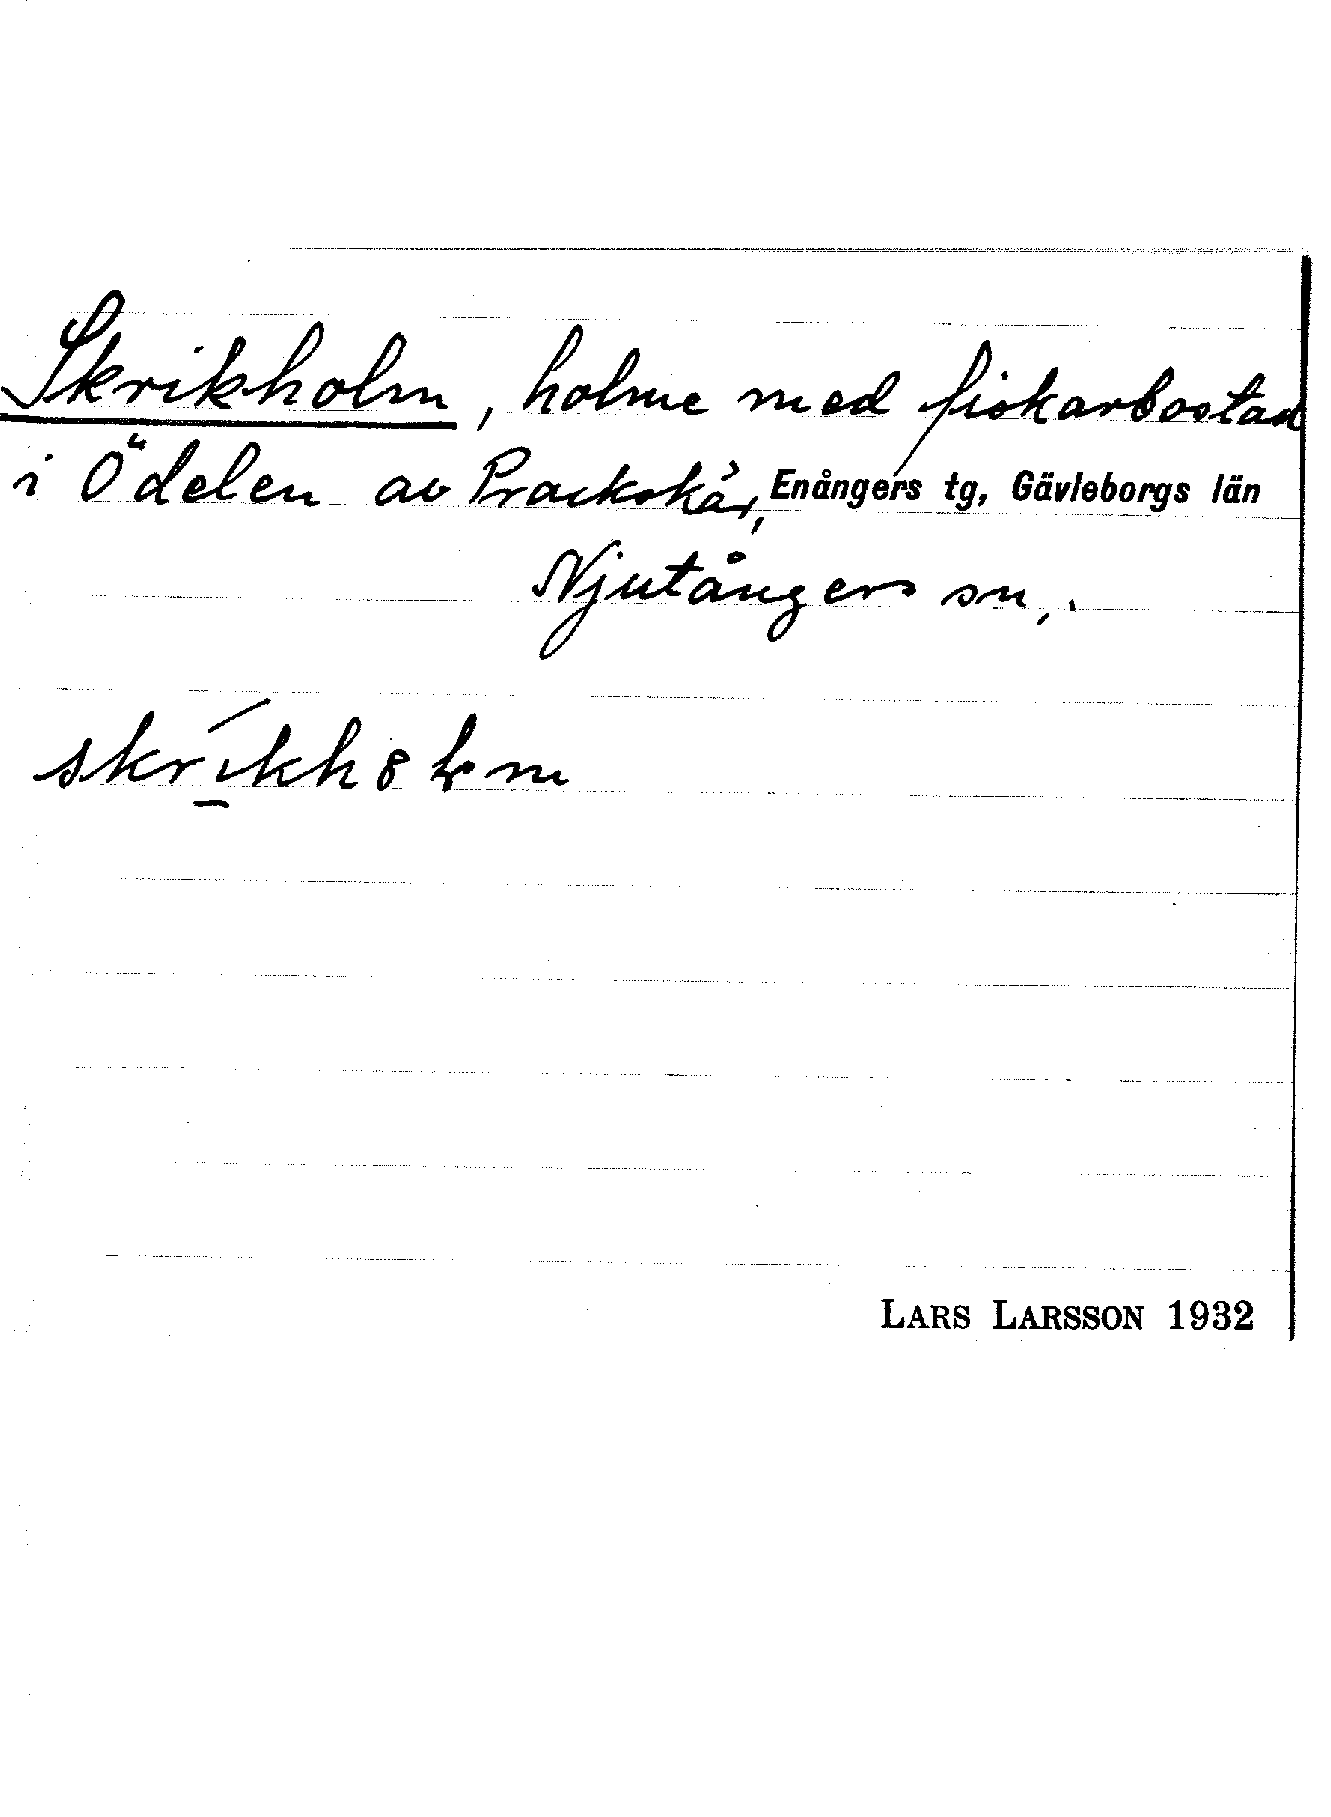 Skrikholm, holme med fiskarbostad
i Ödelen av Prackskär, Enångers tg, Gävleborgs län
Njutångers sn,.
LARS LARSSON 1932